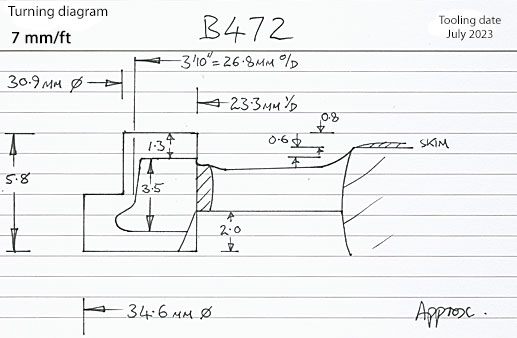 Turning diagram
7 mm/ft
B472
Tooling date
July 2023
3'10" = 26.8 MM O/D
30.9 MM Ø
23.3 MM I/D
0.8
0.6
SKIM
1.3
5.8
3.5
2.0
34.6 MM Ø
Approx.